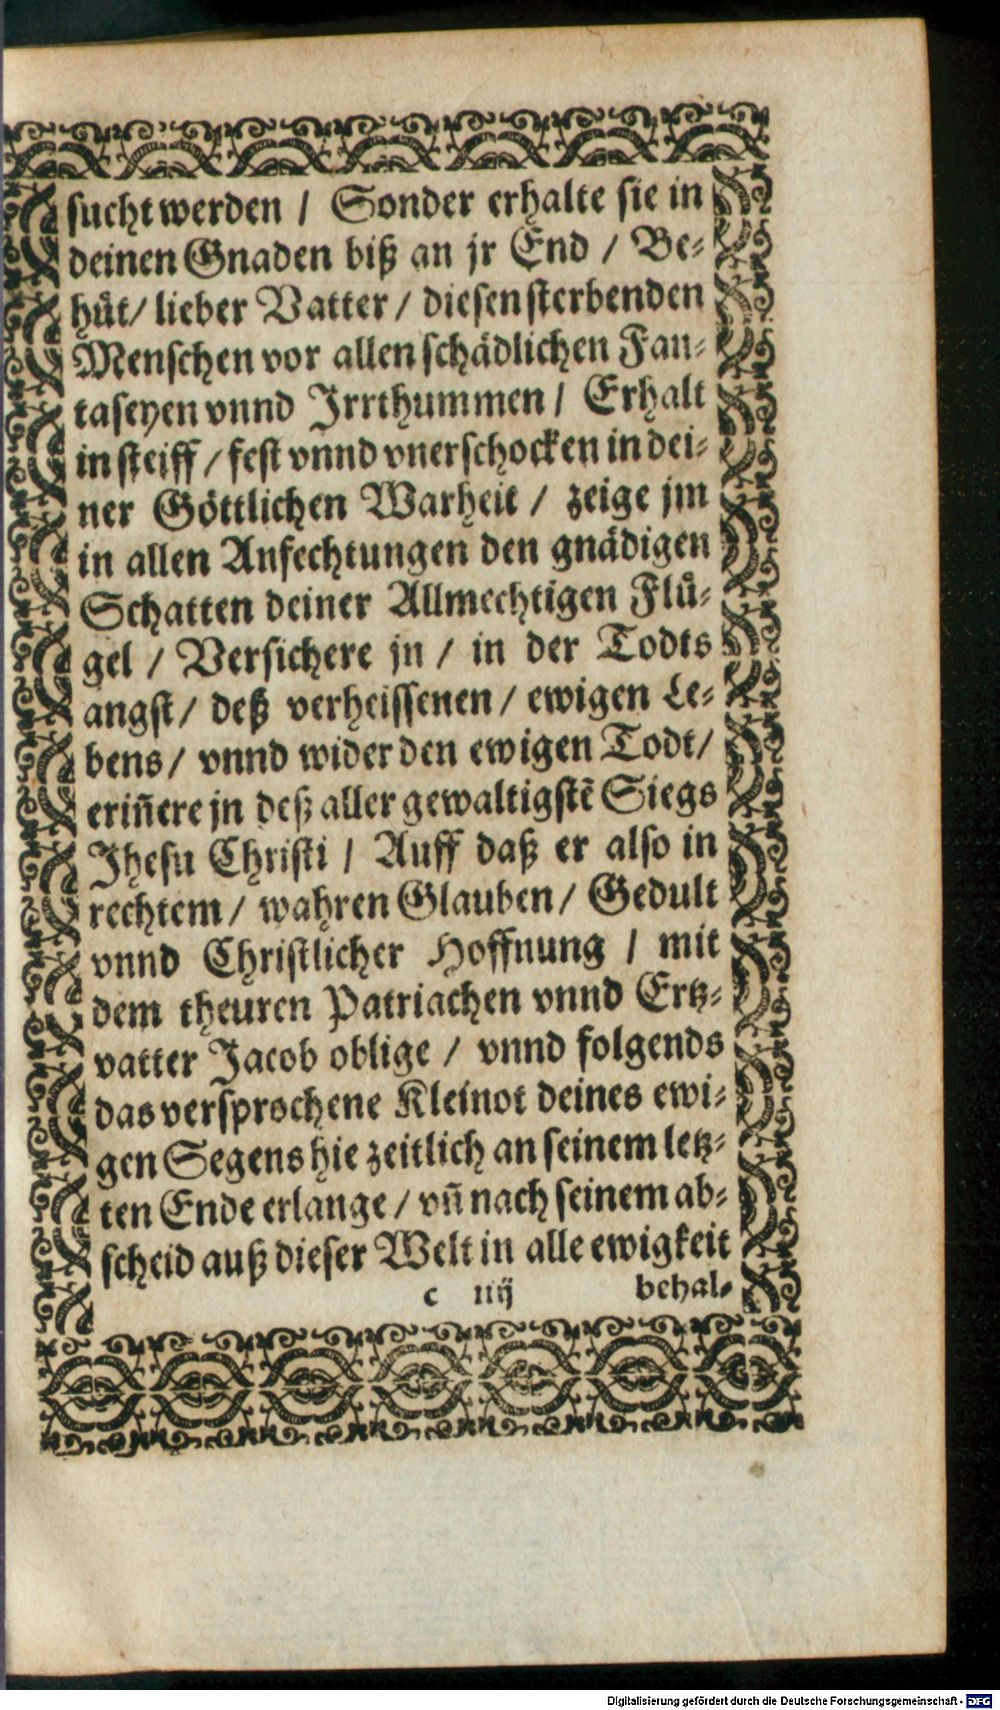 sucht werden / Sonder erhalte sie in
deinen Gnaden biß an jr End / Be-
hůt / lieber Vatter / diesen sterbenden
Menschen vor allen schädlichen Fan-
taseyen vnnd Irrthummen / Erhalt
in steiff / fest vnnd vnerschocken in dei-
ner Göttlichen Warheit / zeige jm
in allen Anfechtungen den gnädigen
Schatten deiner Allmechtigen Flů-
gel / Versichere jn / in der Todts
angst / deß verheissenen / ewigen Le-
bens / vnnd wider den ewigen Todt /
eriñere jn deß aller gewaltigstẽ Siegs
Jhesu Christi / Auff daß er also in
rechtem / wahren Glauben / Gedult
vnnd Christlicher Hoffnung / mit
dem theuren Patriachen vnnd Ertz-
vatter Jacob oblige / vnnd folgends
das versprochene Kleinot deines ewi-
gen Segens hie zeitlich an seinem letz-
ten Ende erlange / vñ nach seinem ab-
scheid auß dieser Welt in alle ewigkeit
c iiij behal-
Digitalisierung gefördert durch die Deutsche Forschungsgemeinschaft - DFG